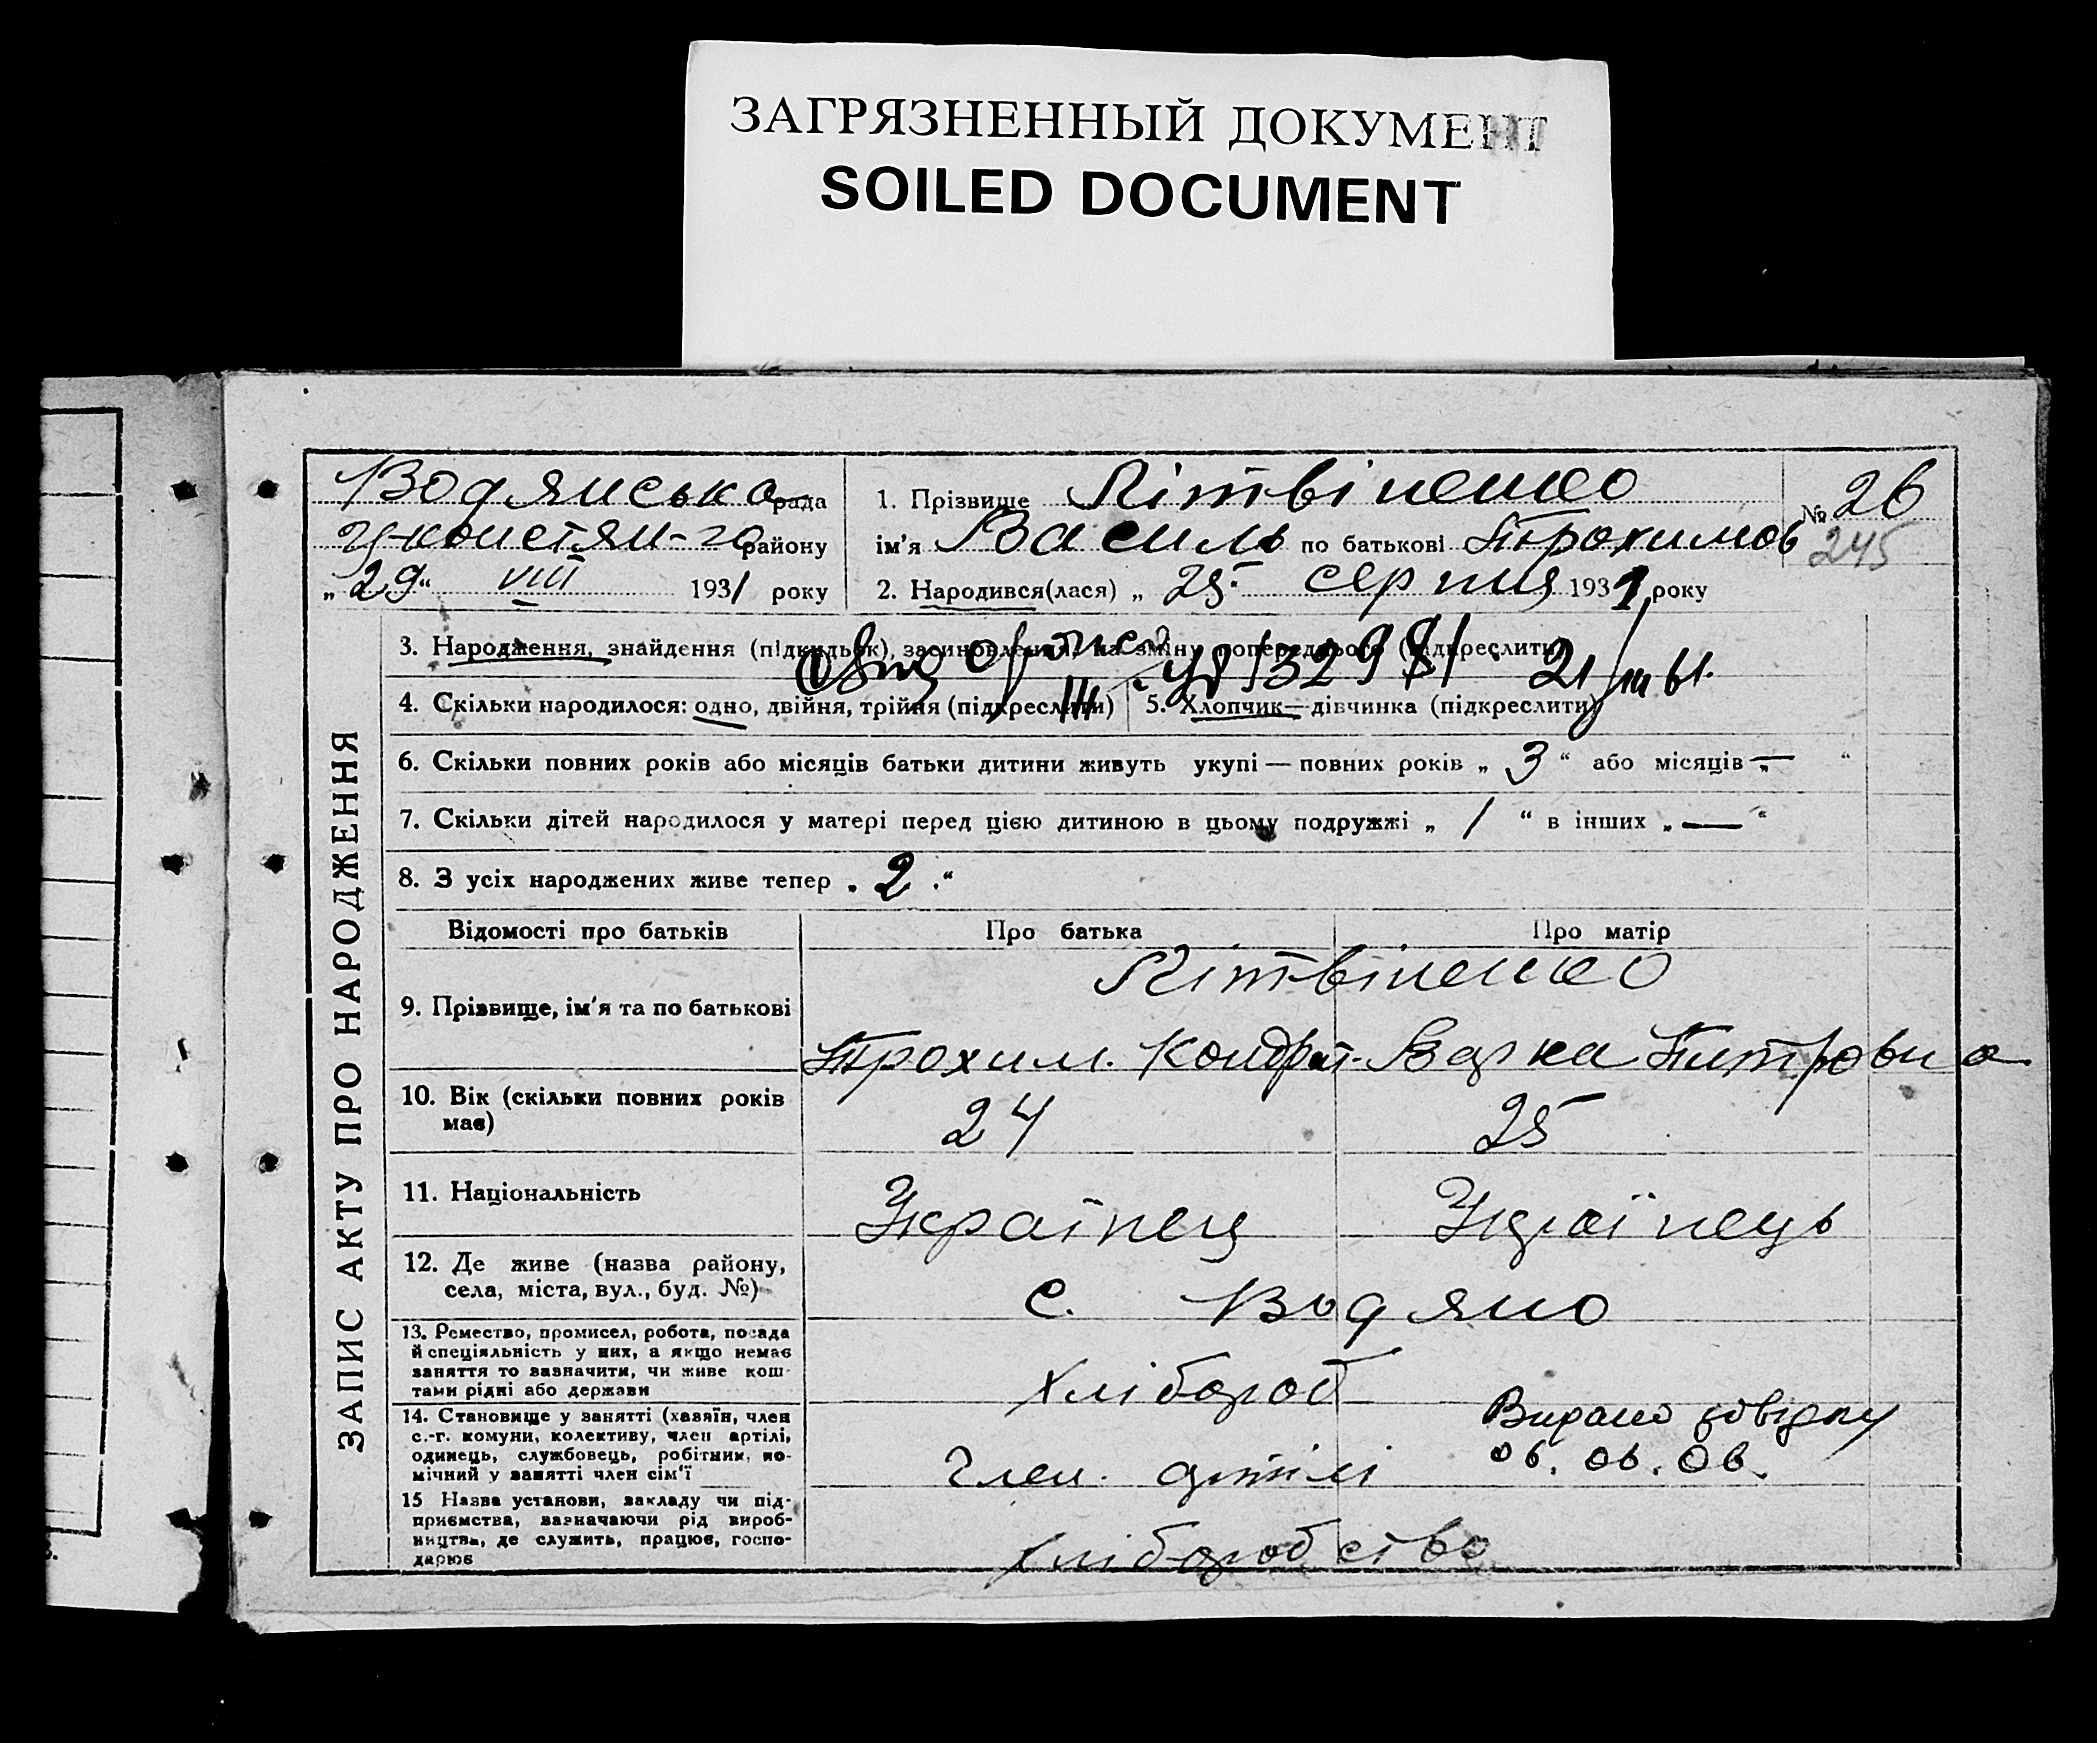 ЗАГРЯЗНЕННЫЙ ДОКУМЕНТ
SOILED DOCUMENT
Водянська рада
району
„ 29 “ VIII 1931 року
1. Прізвище Літвіненко
ім'я Василь по батькові Трохимов
№ 26
245
2. Народився(лася) „ 25 серпня 1931 року
3. Народження, знайдення (підкидьок), засиновлення, на зміну попереднього (підкреслити)
4. Скільки народилося: одно, двійня, трійня (підкреслити) 5. Хлопчик—дівчинка (підкреслити)
6. Скільки повних років або місяців батьки дитини живуть укупі — повних років „ 3 “ або місяців „ — “
7. Скільки дітей народилося у матері перед цією дитиною в цьому подружжі „ 1 “ в інших „ — “
8. З усіх народжених живе тепер „ 2 “
ЗАПИС АКТУ ПРО НАРОДЖЕННЯ
Відомості про батьків Про батька Про матір
Літвіненко
9. Прізвище, ім'я та по батькові
Трохим. Кондрат- Варка Питровна
10. Вік (скільки повних років має) 24 25
11. Національність Українец Українець
12. Де живе (назва району,
села, міста, вул., буд. №) с. Водяно
13. Ремество, промисел, робота, посада
й спеціяльність у них, а якщо немає
заняття то зазначити, чи живе кош-
тами рідні або держави
хлібороб
14. Становище у занятті (хазяїн, член
с.-г. комуни, колективу, член артілі,
одинець, службовець, робітник, по-
мічний у занятті член сім'ї
член. артілі
Видано довідку
06. 06. 06.
15 Назва установи, закладу чи під-
приємства, зазначаючи рід вироб-
ництва, де служить, працює, госпо-
дарює
хліборобство